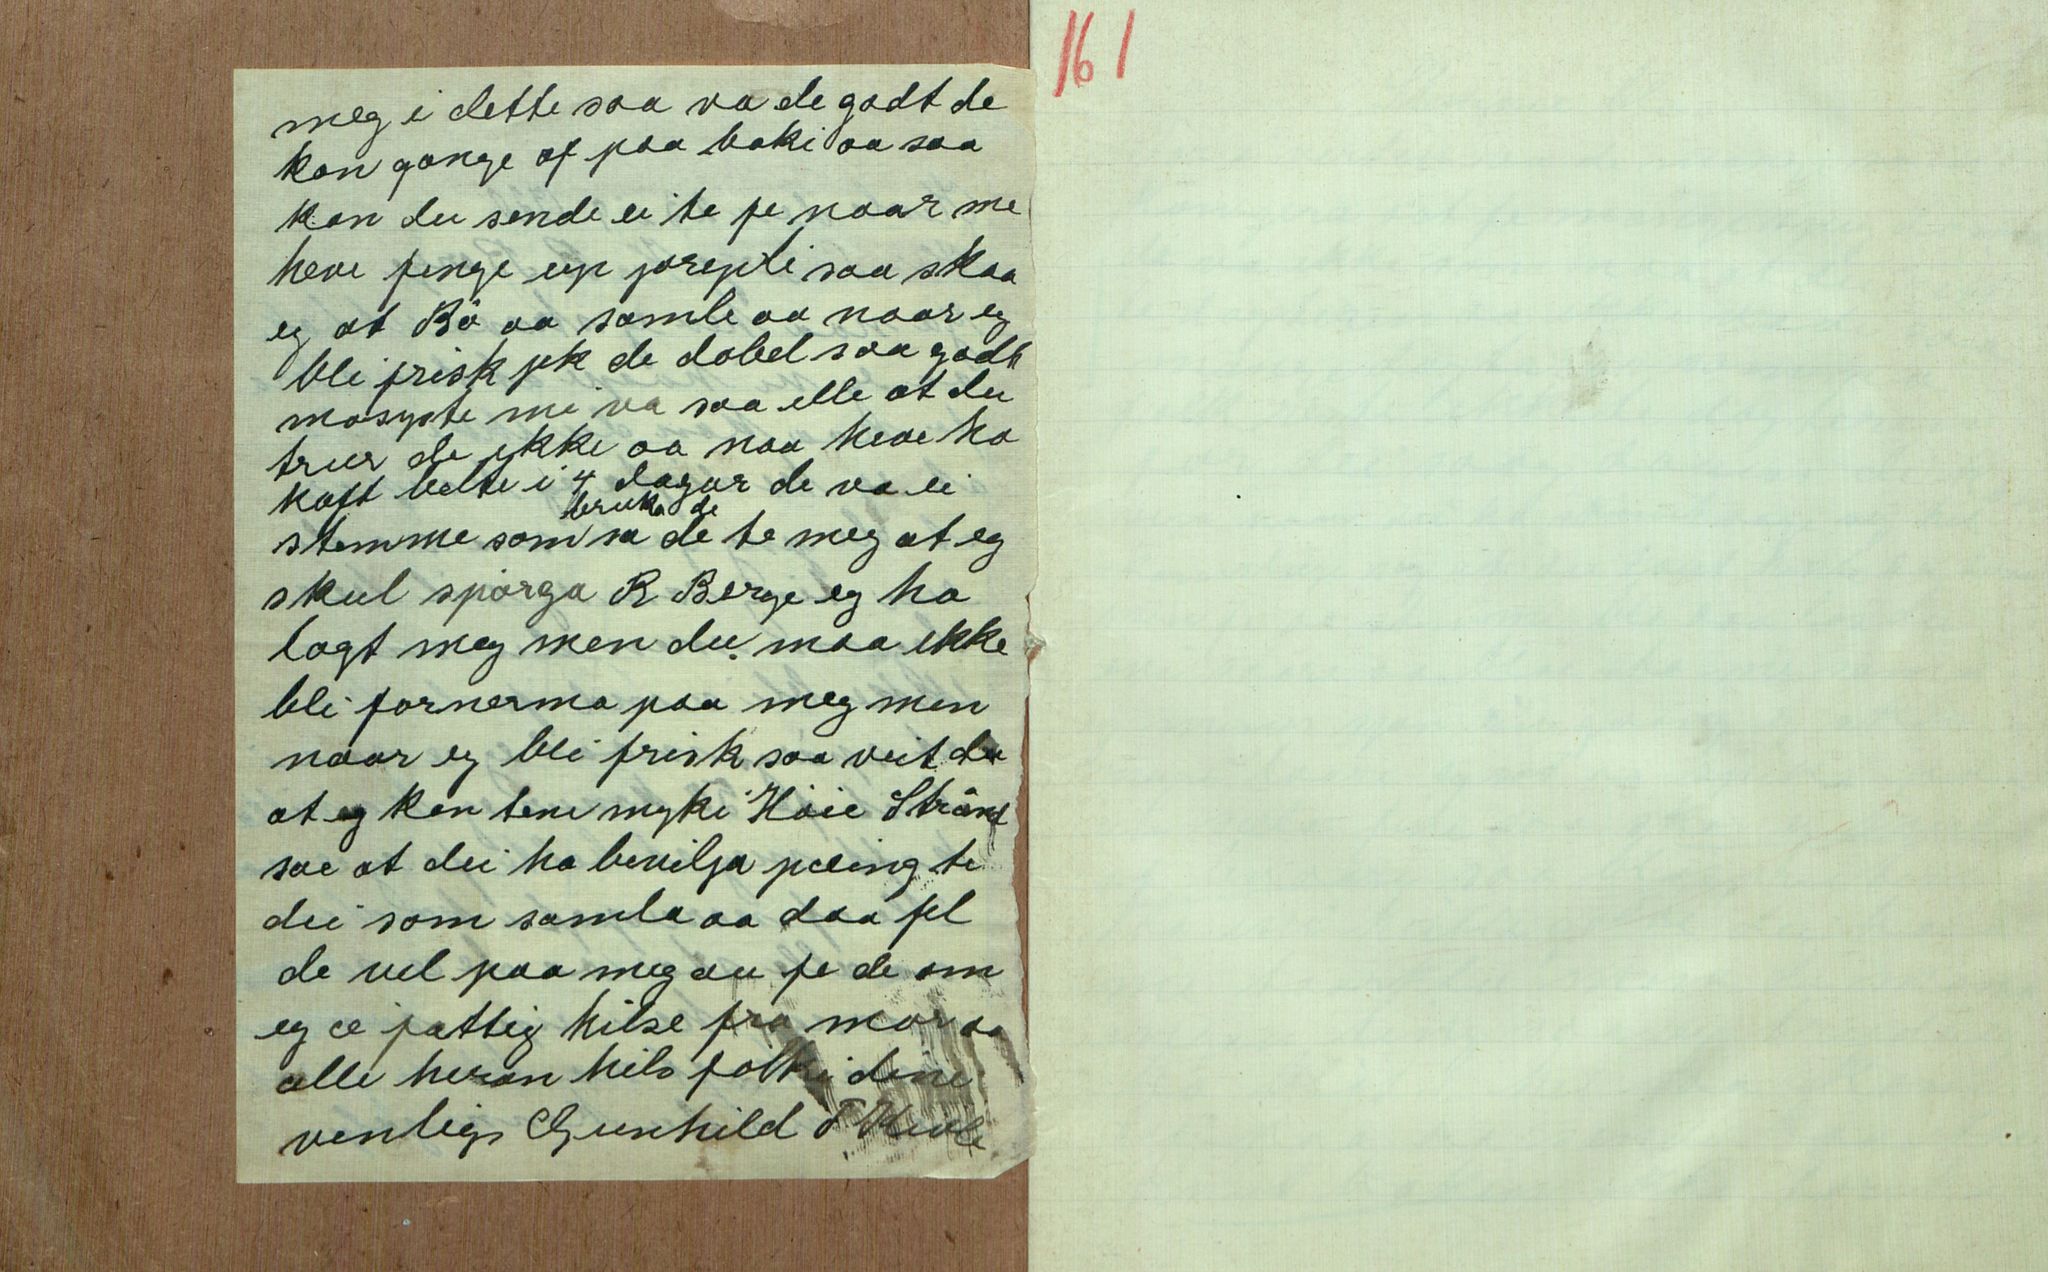 161
meg i dette saa va de godt de
kan gange af paa baki aa saa
kan du sende ei te fe naar me
heve fenge up
saa skaa
eg at Bö aa samle aa naar eg
bli frisk fek de dobel saa godt
mi va saa elle at du
trur de ikke aa naa heve ha
kaft belte i 4 dagar de va ei
bruka de
stemme som sa de te meg at eg
skul spörga R Berge eg ha
lagt meg men du maa ikke
bli fornerma paa meg men
naar eg bli frisk saa veit du
at eg kan tene myki Höie Strånd
sae at dei ha bevilja pæing te
dei som samla aa daa fel
de vel paa meg au fe de om
eg æ fattig hilse fra mor aa
alle heran hils folki dine
venligs Gunhild T Kivle